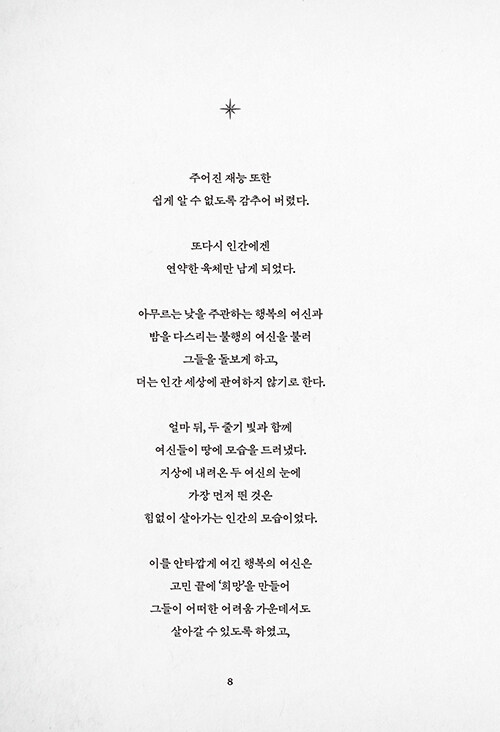 주어진 재능 또한
쉽게 알 수 없도록 감추어 버렸다.
또다시 인간에겐
연약한 육체만 남게 되었다.
아무르는 낮을 주관하는 행복의 여신과
밤을 다스리는 불행의 여신을 불러
그들을 돌보게 하고,
더는 인간 세상에 관여하지 않기로 한다.
얼마 뒤, 두 줄기 빛과 함께
여신들이 땅에 모습을 드러냈다.
지상에 내려온 두 여신의 눈에
가장 먼저 띈 것은
힘없이 살아가는 인간의 모습이었다.
이를 안타깝게 여긴 행복의 여신은
고민 끝에 ‘희망’을 만들어
그들이 어떠한 어려움 가운데서도
살아갈 수 있도록 하였고,
8